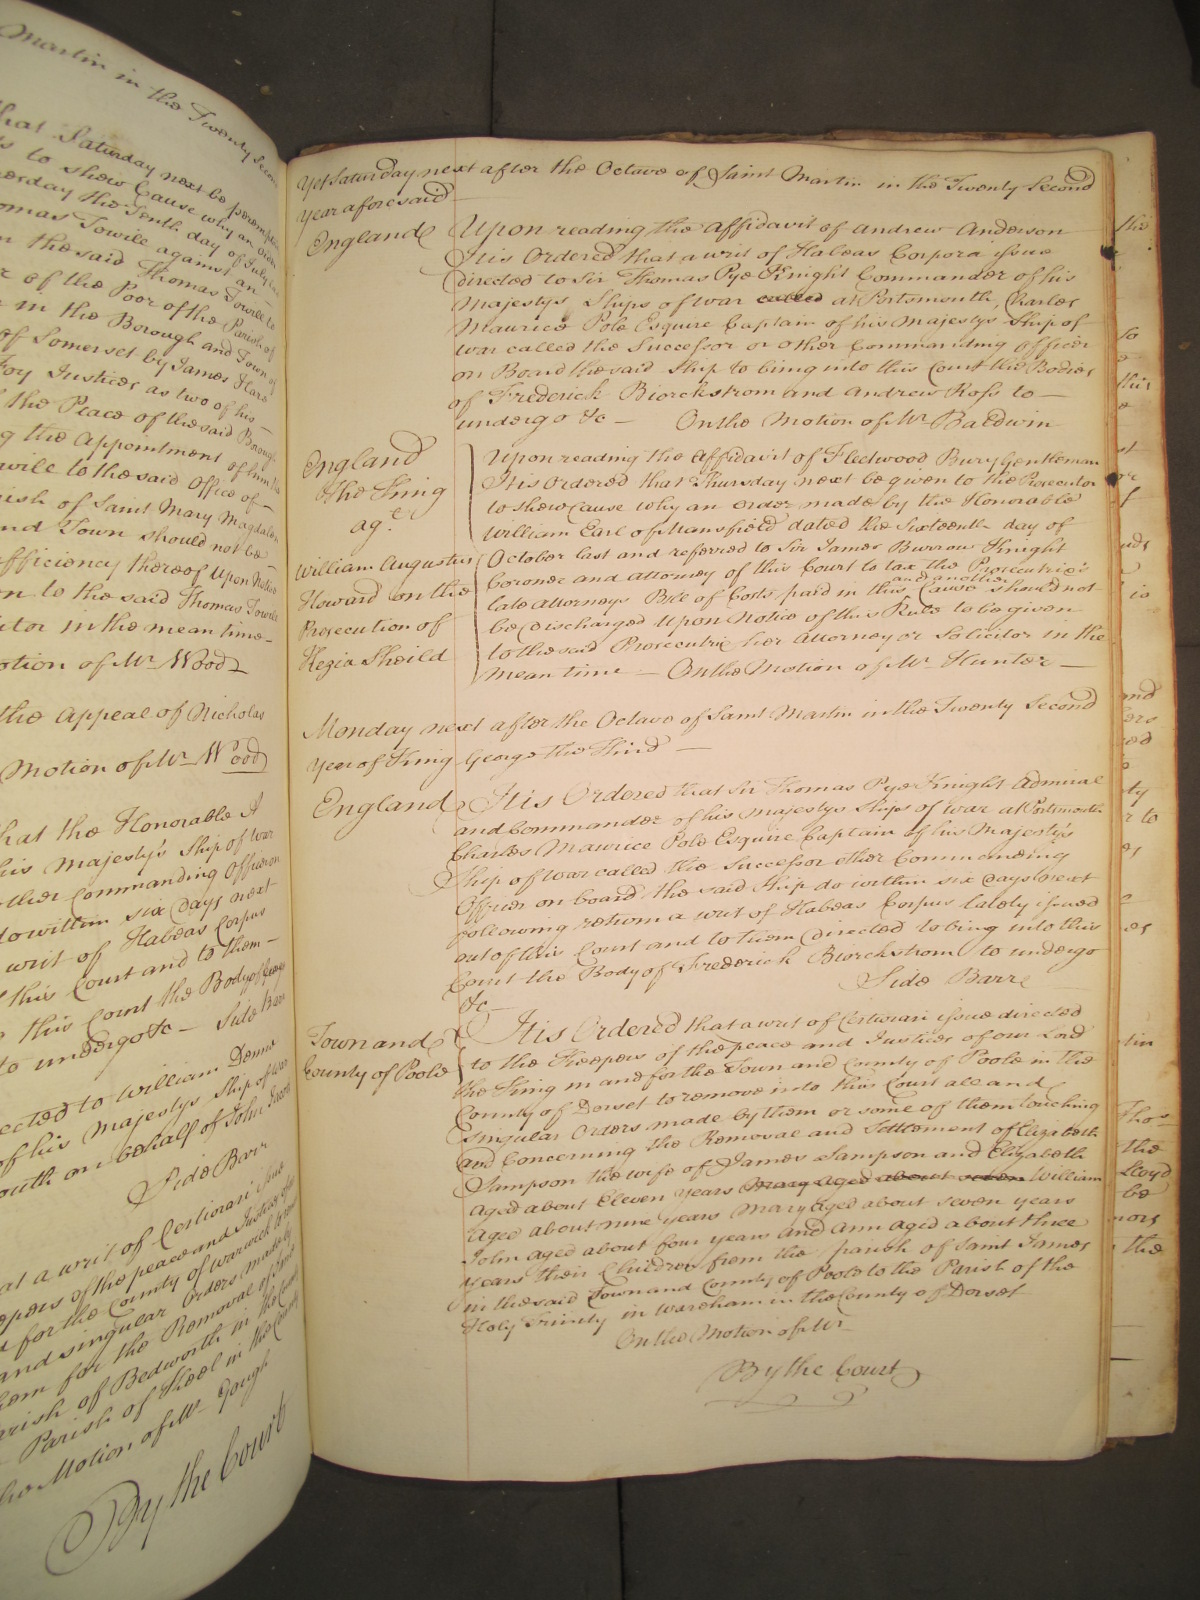 Martin in the Twenty Secon
hat Saturday next be peremptor
s to shew Cause why an order
nesday the Tenth day of July las
omas Towill against an
m the said Thomas Towill to
r of the Poor of the Parish of
e in the Borough and Town of
of Somerset by James Hare
Foy Justices as two of his
the Peace of the said Borough
g the Appointment of him the
wille to the said Office of
rish of Saint Mary Magdalen
nd Town should not be
fficiency thereof Upon Notice
n to the said Thomas Towill
itor in the mean time
otion of Mr Wood
the appeal of Nicholas
Motion of Mr Wood
hat the Honorable A
his Majesty's Ship of War
ther Commanding Officer on
do within six days next
writ of Habeas Corpus
f this Court and to them
this Court the Body of George
to undergo &c Side Bar
ected to William Denne
of his Majestys Ship of War
outh on behalf of John Jacob
Side Barr
at a writ of Certiorari issue
epers of the peace and Justices of our
d for the County of Warwick to rem
and singular Orders made by
hem for the Removal of
arish of Bedworth in the County
Parish of in the County
he Motion of Mr Gough
By the Court
Yet Saturday next after the Octave of Saint Martin in the Twenty Second
Year aforesaid
England Upon reading the affidavit of Andrew Anderson
It is Ordered that a writ of Habeas Corpora issue
directed to Sir Thomas Pye Knight Commander of his
Majestys Ships of War called at Portsmouth, Charles
Maurice Pole Esquire Captain of his Majestys Ship of
War called the Successor or other Commanding Officer
on Board the said Ship to bring into this Court the Bodies
of Frederick Biorckstrom and Andrew Ross to
undergo &c On the Motion of Mr Baldwin
England
The King
agt
William Augustus
Howard on the
Prosecution of
Kezia Sheild
Upon reading the Affidavit of Fleetwood Bury Gentleman
It is Ordered that Thursday next be given to the Prosecutor
to shew Cause why an order made by the Honorable
William Earl of Mansfield dated the Sixteenth day of
October last and referred to Sir James Burrow Knight
Coroner and Attorney of this Court to tax the Prosecutrix's
late Attorneys Bill of Costs paid in this and another Cause should not
be discharged Upon Notice of this Rule to be given
to the said Prosecutrix her Attorney or Solicitor in the
mean time On the Motion of Mr Hunter
Monday next after the Octave of Saint Martin in the Twenty Second
Year of King George the Third
England It is Ordered that Sir Thomas Pye Knight Admiral
and Commander of his Majestys Ships of War at Portsmouth
Charles Maurice Pole Esquire Captain of his Majesty's
Ship of War called the Successor other Commanding
Officer on board the said Ship do within six days next
following return a writ of Habeas Corpus lately issued
out of this Court and to them directed to bring into this
Court the Body of Frederick Biorckstrom to undergo
&c Side Barr
Town and
County of Poole
It is Ordered that a writ of Certiorari issue directed
to the Keepers of the peace and Justices of our Lord
the King in and for the Town and County of Poole in the
County of Dorset to remove into this Court all and
singular Orders made by them or some of them touching
and Concerning the Removal and Settlement of Elizabeth
Sampson the wife of James Sampson and Elizabeth
aged about Eleven years Mary aged about seven William
aged about nine years Mary aged about seven years
John aged about four years and Ann aged about three
years their Children from the parish of Saint James
in the said Town and County of Poole to the Parish of the
Holy Trinity in Wareham in the County of Dorset
On the Motion of Mr
By the Court